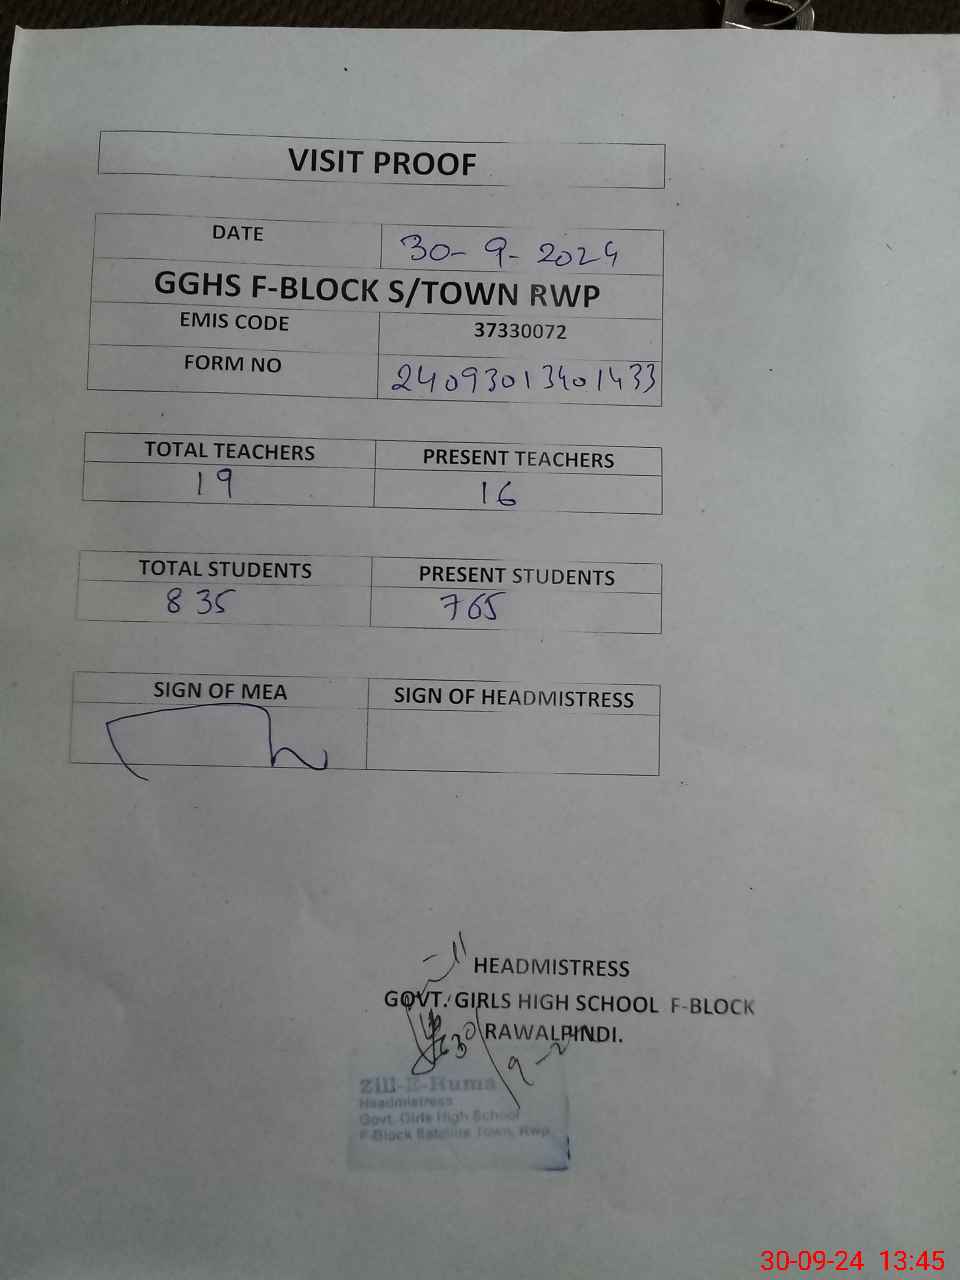 VISIT PROOF
DATE 30-9-2024
GGHS F-BLOCK S/TOWN RWP
EMIS CODE 37330072
FORM NO 24093013401433
TOTAL TEACHERS PRESENT TEACHERS
19 16
TOTAL STUDENTS PRESENT STUDENTS
835 765
SIGN OF MEA SIGN OF HEADMISTRESS
HEADMISTRESS
GOVT. GIRLS HIGH SCHOOL F-BLOCK
RAWALPINDI.
30/9-2
Zill-E-Huma
Headmistress
Govt. Girls High School
F-Block Satellite Town, Rwp
30-09-24 13:45